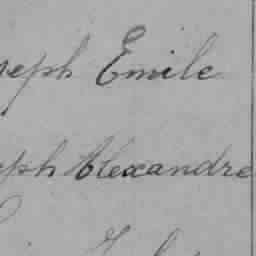 seph Emile
eph Alexandre